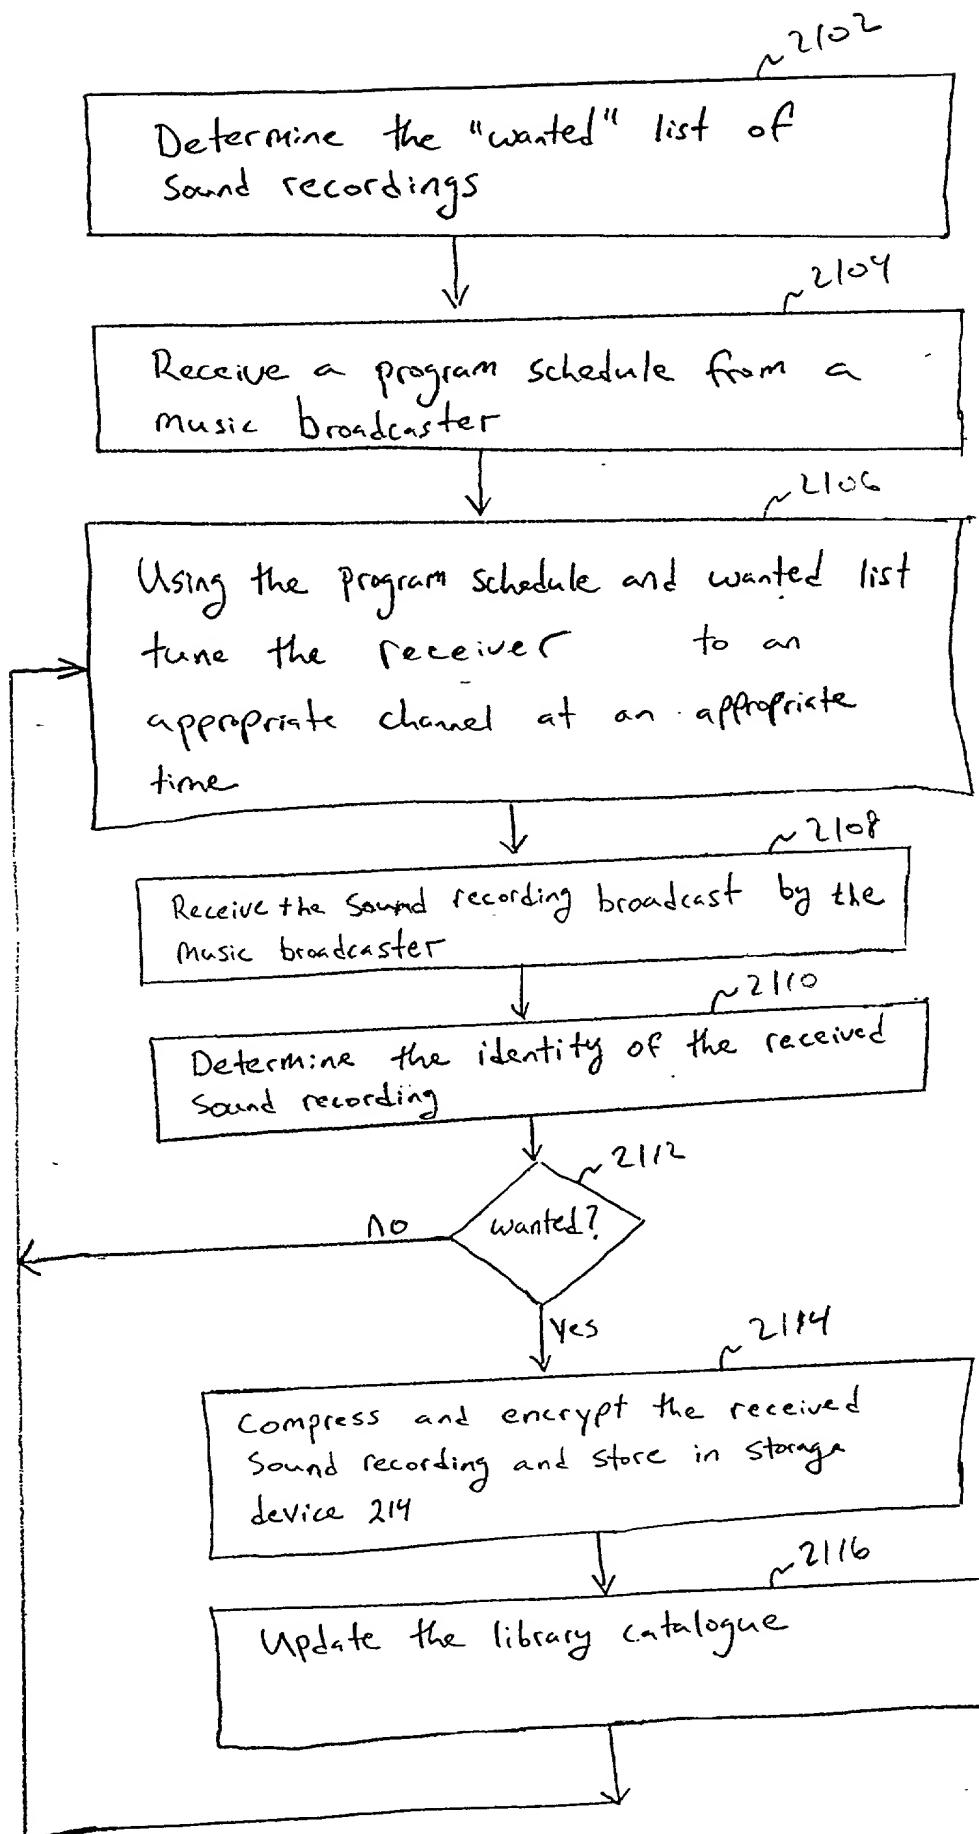 2102
Determine the "wanted" list of
Sound recordings
2104
Receive a program schedule from a
music broadcaster
2106
Using the program schedule and wanted list
tune the receiver to an
appropriate channel at an appropriate
time
2108
Receive the Sound recording broadcast by the
music broadcaster
2110
Determine the identity of the received
Sound recording
2112
wanted?
no
yes
2114
Compress and encrypt the received
Sound recording and store in storage
device 214
2116
Update the library catalogue